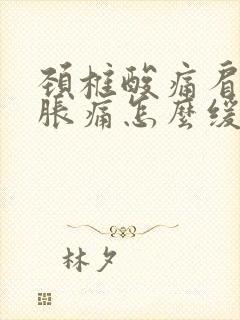 頚椎酸痛肩
脹痛怎麼緩
林夕